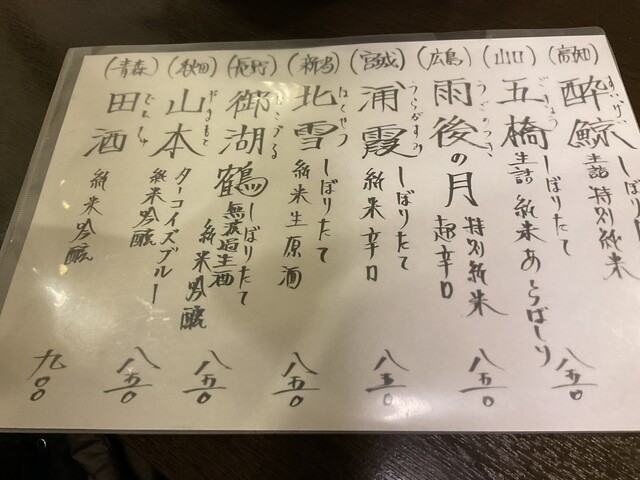 (高知)
酔鯨
すいげい
しぼりたて
生詰 特別純米
八五〇
(山口)
五橋
ごきょう
しぼりたて
生詰 純米 あらばしり
八五〇
(広島)
雨後の月
うごのつき
特別純米
超辛口
八五〇
(宮城)
浦霞
うらがすみ
しぼりたて
純米辛口
八五〇
(新潟)
北雪
ほくせつ
しぼりたて
純米生原酒
八五〇
(長野)
御湖鶴
みこつる
しぼりたて
無濾過生酒
純米吟醸
八五〇
(秋田)
山本
やまもと
ターコイズブルー
純米吟醸
八五〇
(青森)
田酒
でんしゅ
純米吟醸
九〇〇